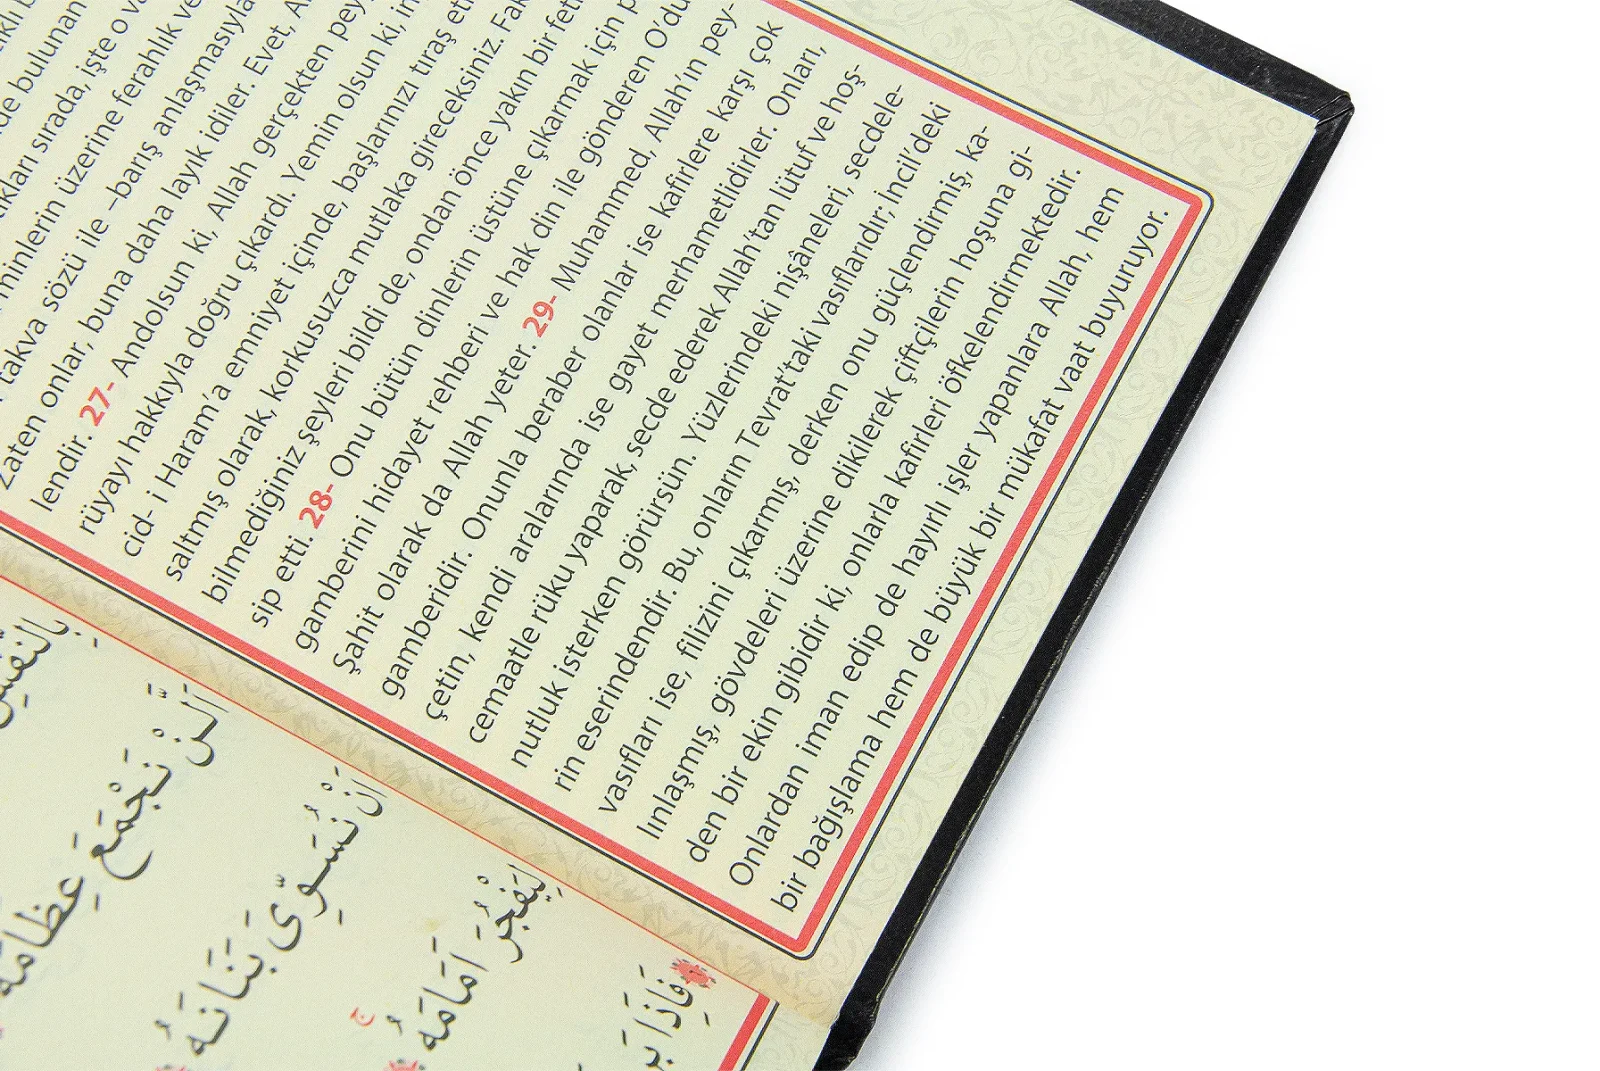 de bulunan
tıkları sırada, işte o
minlerin üzerine ferahlık ve
takva sözü ile –barış anlaşmasıyla
zaten onlar, buna daha layık idiler. Evet, A
lendir. 27- Andolsun ki, Allah gerçekten pey
rüyayı hakkıyla doğru çıkardı. Yemin olsun ki, in
cid- i Haram'a emniyet içinde, başlarınızı tıraş et
saltmış olarak, korkusuzca mutlaka gireceksiniz. Fak
bilmediğiniz şeyleri bildi de, ondan önce yakın bir fet
sip etti. 28- Onu bütün dinlerin üstüne çıkarmak için p
gamberini hidayet rehberi ve hak din ile gönderen O'du
Şahit olarak da Allah yeter. 29- Muhammed, Allah'ın pey-
gamberidir. Onunla beraber olanlar ise kafirlere karşı çok
çetin, kendi aralarında ise gayet merhametlidirler. Onları,
cemaatle rüku yaparak, secde ederek Allah'tan lütuf ve hoş-
nutluk isterken görürsün. Yüzlerindeki nişâneleri, secdele-
rin eserindendir. Bu, onların Tevrat'taki vasıflarıdır; İncil'deki
vasıfları ise, filizini çıkarmış, derken onu güçlendirmiş, ka-
lınlaşmış, gövdeleri üzerine dikilerek çiftçilerin hoşuna gi-
den bir ekin gibidir ki, onlarla kafirleri öfkelendirmektedir.
Onlardan iman edip de hayırlı işler yapanlara Allah, hem
bir bağışlama hem de büyük bir mükafat vaat buyuruyor.
بِالنَّفْسِ
اَلَّنْ نَجْمَعَ عِظَامَهُ
اَنْ نُسَوِّىَ بَنَانَهُ
لِيَفْجُرَ اَمَامَهُ ج
فَاِذَا بَرِ